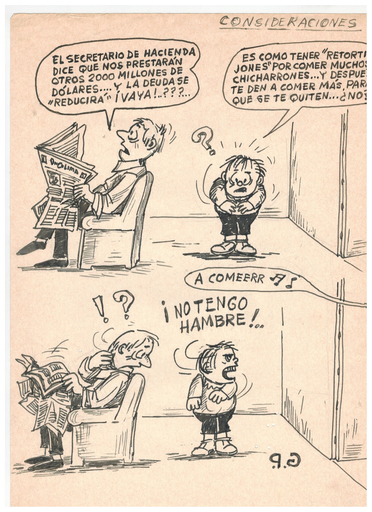 CONSIDERACIONES
EL SECRETARIO DE HACIENDA
DICE QUE NOS PRESTARÁN
OTROS 2000 MILLONES DE
DÓLARES.... Y LA DEUDA SE
"REDUCIRÁ" ¡VAYA!..???...
ES COMO TENER "RETORTI
JONES" POR COMER MUCHOS
CHICHARRONES...Y DESPUE
TE DEN A COMER MÁS, PARA
QUE SE TE QUITEN...¿NO?
?
A COMEERR
! ?
¡NO TENGO
HAMBRE!...